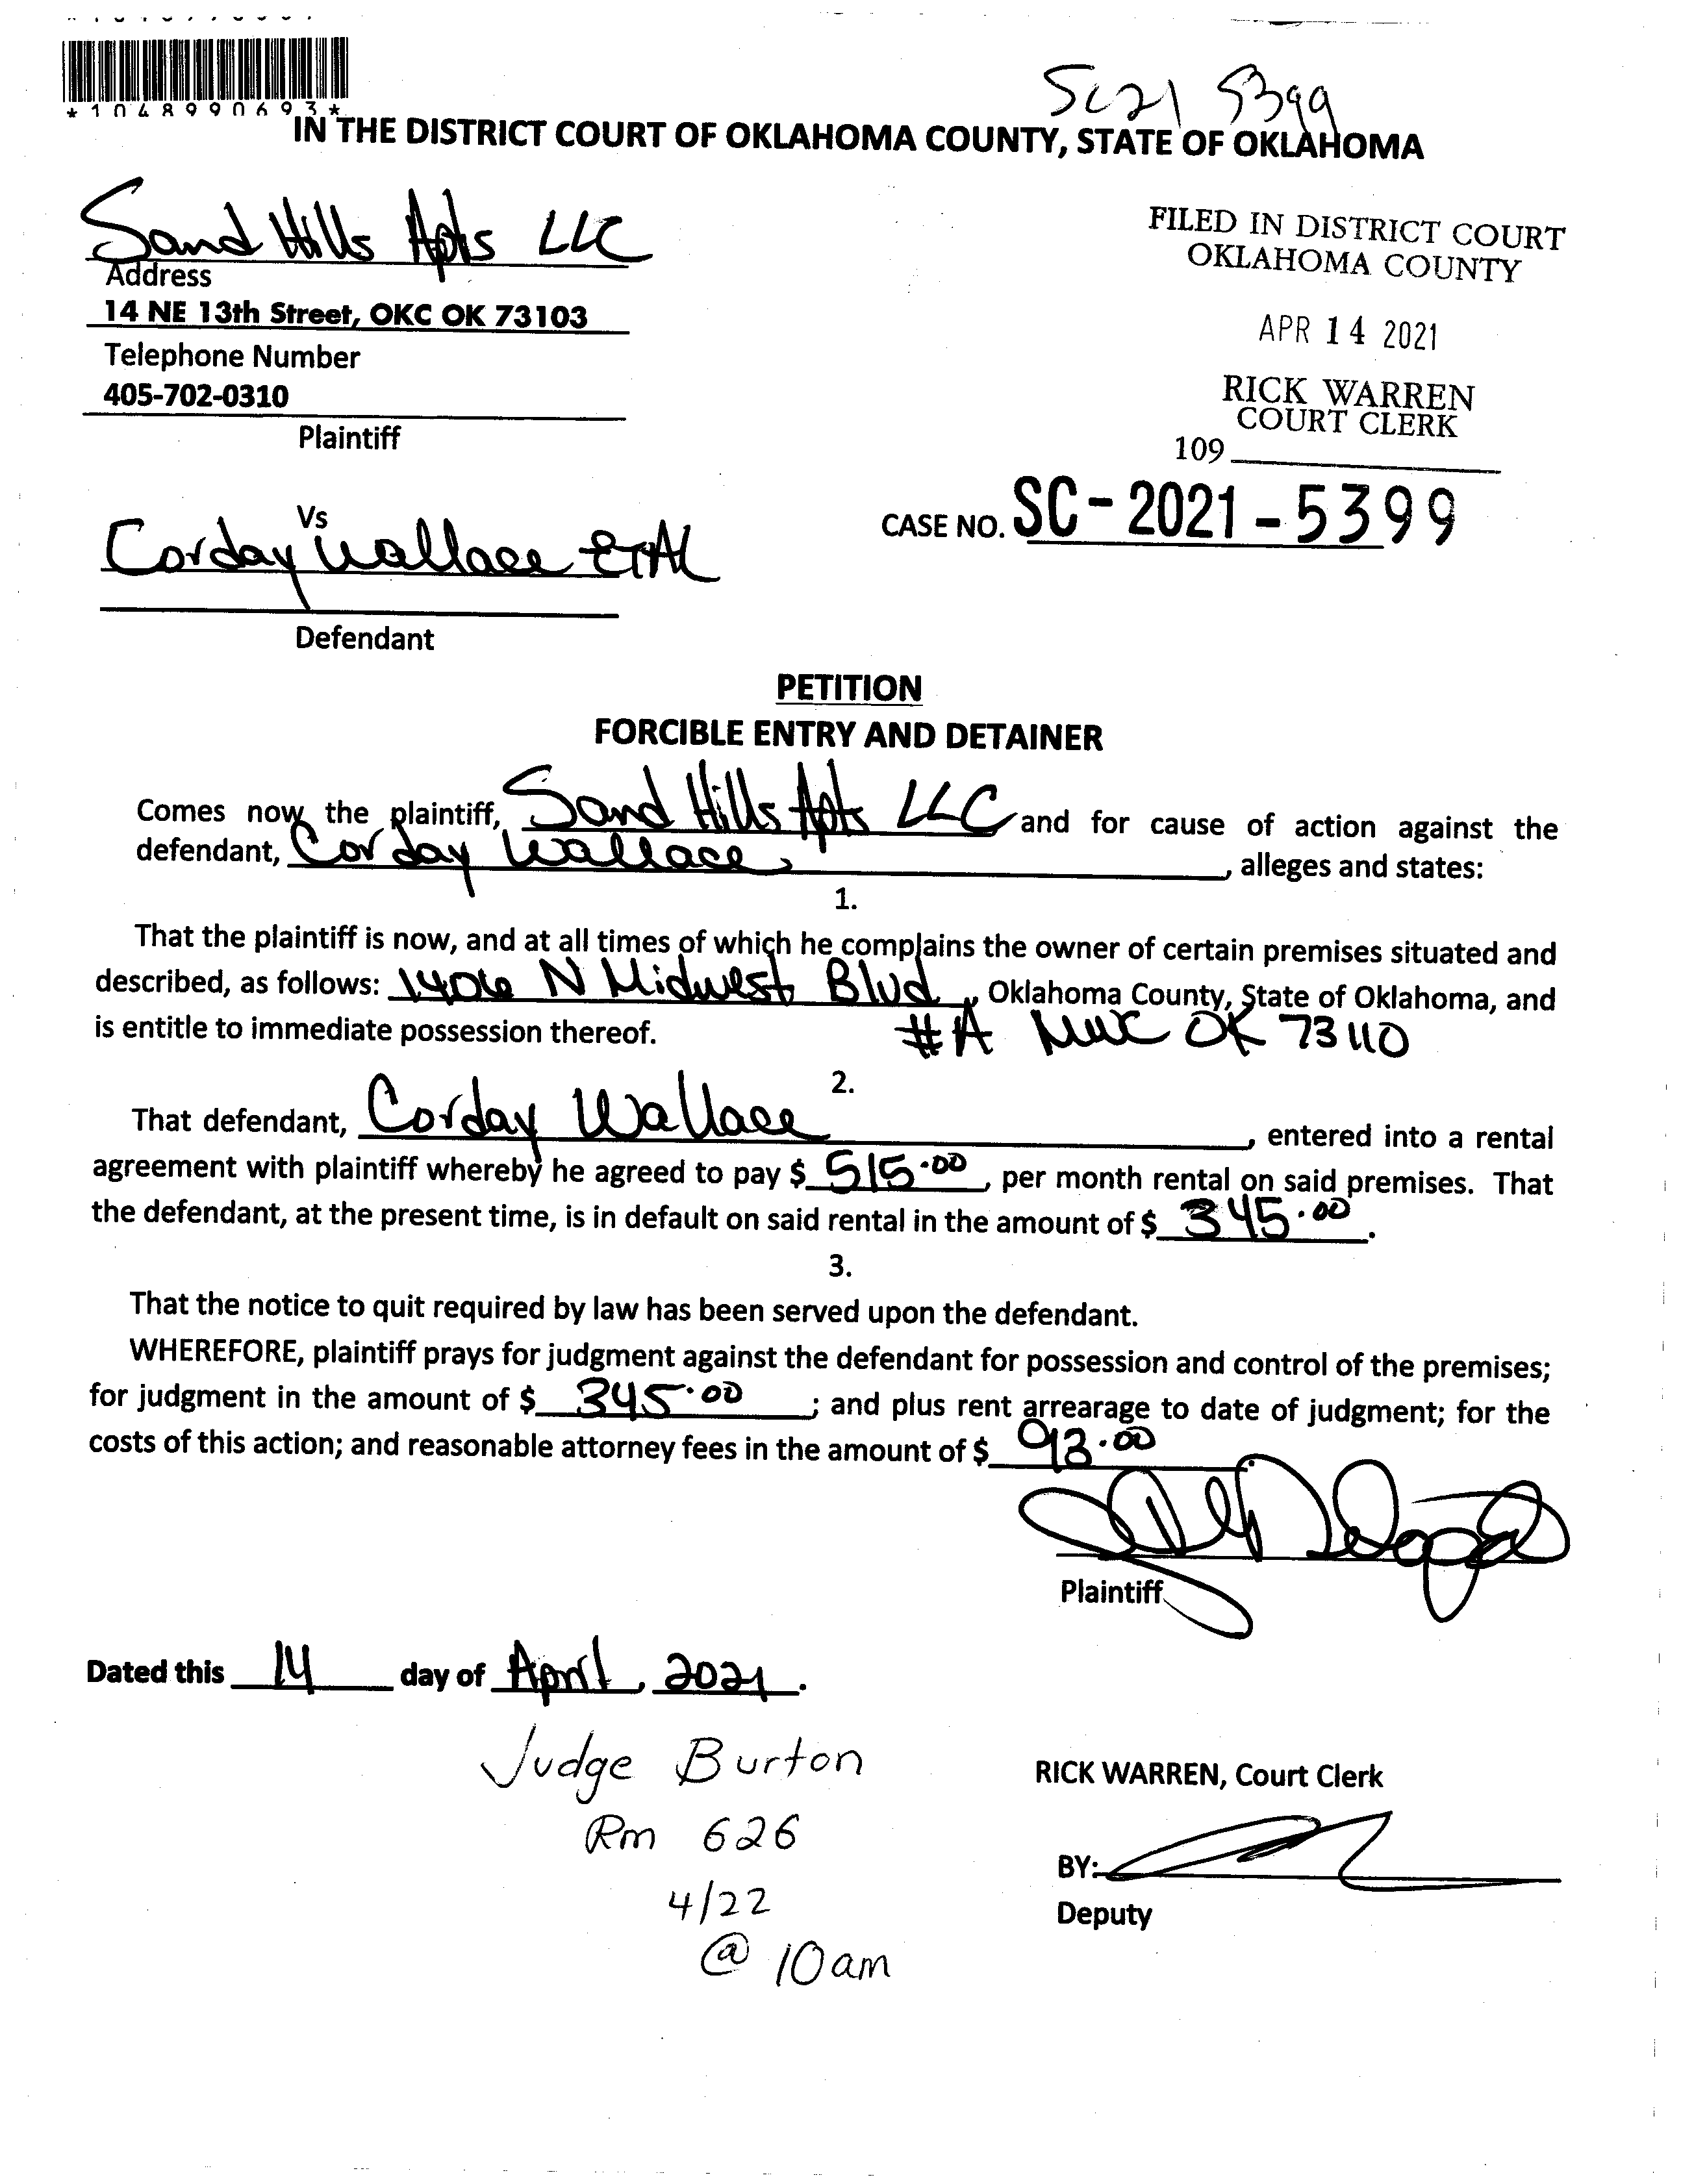 *1048990693*
SC21 5399
IN THE DISTRICT COURT OF OKLAHOMA COUNTY, STATE OF OKLAHOMA
Sand Hills Apts LLC
Address
14 NE 13th Street, OKC OK 73103
Telephone Number
405-702-0310
Plaintiff
FILED IN DISTRICT COURT
OKLAHOMA COUNTY
APR 14 2021
RICK WARREN
COURT CLERK
109
CASE NO. SC-2021-5399
Vs
Corday Wallace ETAL
Defendant
PETITION
FORCIBLE ENTRY AND DETAINER
Comes now the plaintiff, Sand Hills Apts LLC and for cause of action against the
defendant, Corday Wallace, , alleges and states:
1.
That the plaintiff is now, and at all times of which he complains the owner of certain premises situated and
described, as follows: 1406 N Midwest Blvd, Oklahoma County, State of Oklahoma, and
is entitle to immediate possession thereof. #A MWC OK 73110
2.
That defendant, Corday Wallace, entered into a rental
agreement with plaintiff whereby he agreed to pay $ 515.00, per month rental on said premises. That
the defendant, at the present time, is in default on said rental in the amount of $ 345.00.
3.
That the notice to quit required by law has been served upon the defendant.
WHEREFORE, plaintiff prays for judgment against the defendant for possession and control of the premises;
for judgment in the amount of $ 345.00 ; and plus rent arrearage to date of judgment; for the
costs of this action; and reasonable attorney fees in the amount of $ 93.00.
Plaintiff
Dated this 14 day of April, 2021.
Judge Burton
Rm 626
4/22
@ 10am
RICK WARREN, Court Clerk
BY:
Deputy